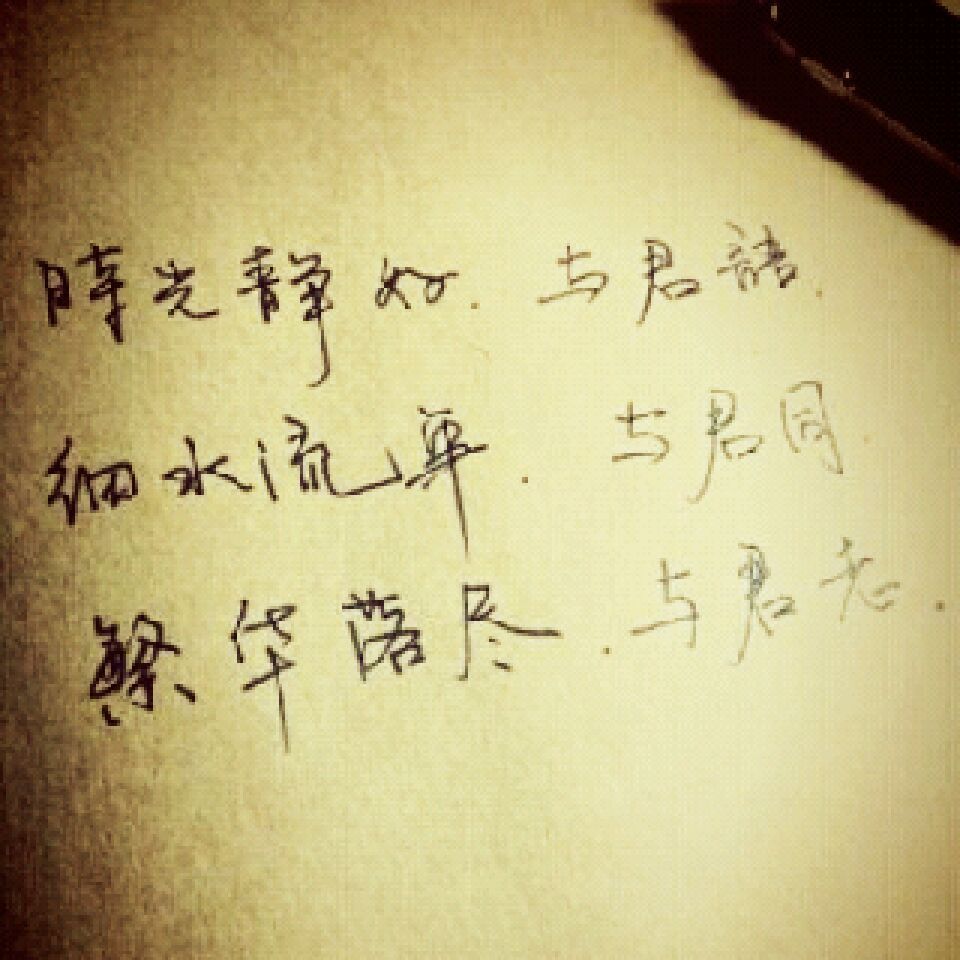 時光静好.与君語.
细水流年.与君同.
繁华落尽.与君老.